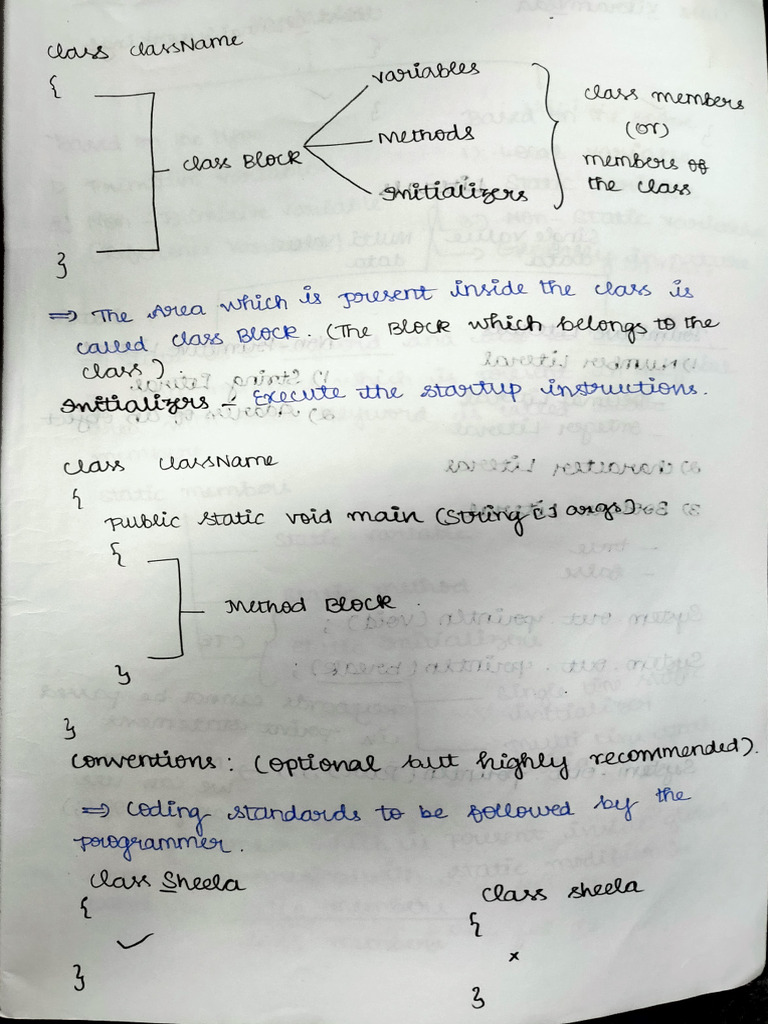 class className
{
class Block
variables
Methods
Initializers
class members
(or)
members of
the class
}
⇒ The Area which is present inside the class is
called class Block. (The Block which belongs to the
class).
Initializers - Execute the startup instructions.
class className
{
public static void main (String [] args)
{
Method Block
}
}
conventions: (optional but highly recommended).
⇒ coding standards to be followed by the
programmer.
class Sheela
{
✓
}
class sheela
{
x
}